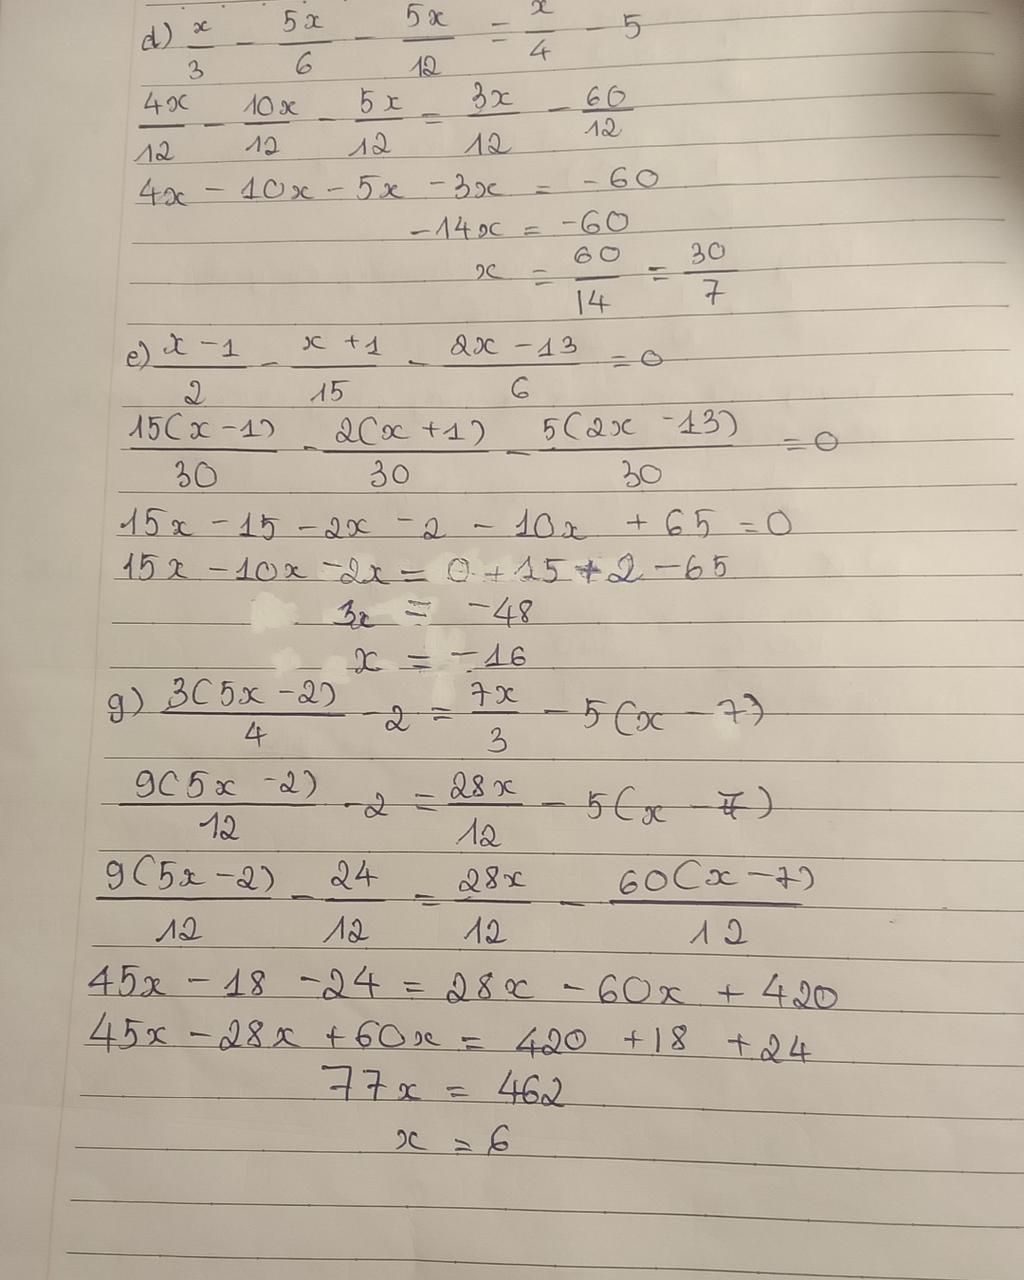 d) x/3 - 5x/6 - 5x/12 = x/4 - 5
4x/12 - 10x/12 - 5x/12 = 3x/12 - 60/12
4x - 10x - 5x - 3x = -60
-14x = -60
x = 60/14 = 30/7
e) x-1/2 - x+1/15 - 2x-13/6 = 0
15(x-1)/30 - 2(x+1)/30 - 5(2x-13)/30 = 0
15x - 15 - 2x - 2 - 10x + 65 = 0
15x - 10x - 2x = 0 + 15 + 2 - 65
3x = -48
x = -16
g) 3(5x-2)/4 - 2 = 7x/3 - 5(x-7)
9(5x-2)/12 - 2 = 28x/12 - 5(x-7)
9(5x-2)/12 - 24/12 = 28x/12 - 60(x-7)/12
45x - 18 - 24 = 28x - 60x + 420
45x - 28x + 60x = 420 + 18 + 24
77x = 462
x = 6